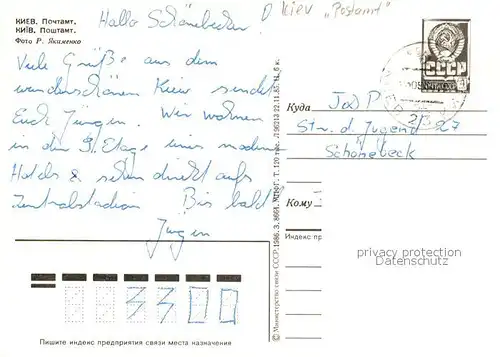 КИЕВ. Почтамт.
КИЇВ. Поштамт.
Фото Р. Якименко
Kiev "Postamt"
Hallo Schönebecker!
Viele Grüße aus dem
wunderschönen Kiew sendet
Euch Jürgen. Wir wohnen
in der 9. Etage eines modernen
Hotels & sehen direkt aufs
Zentralstadion Bis bald!
Jürgen
СССР
Куда JaP
213
Str. d. Jugend 27
Schönebeck
Кому
Индекс пр
privacy protection
Datenschutz
© Министерство связи СССР. 1986. З. 8661. МПФГ. Т. 120 тыс.
3300
Пишите индекс предприятия связи места назначения